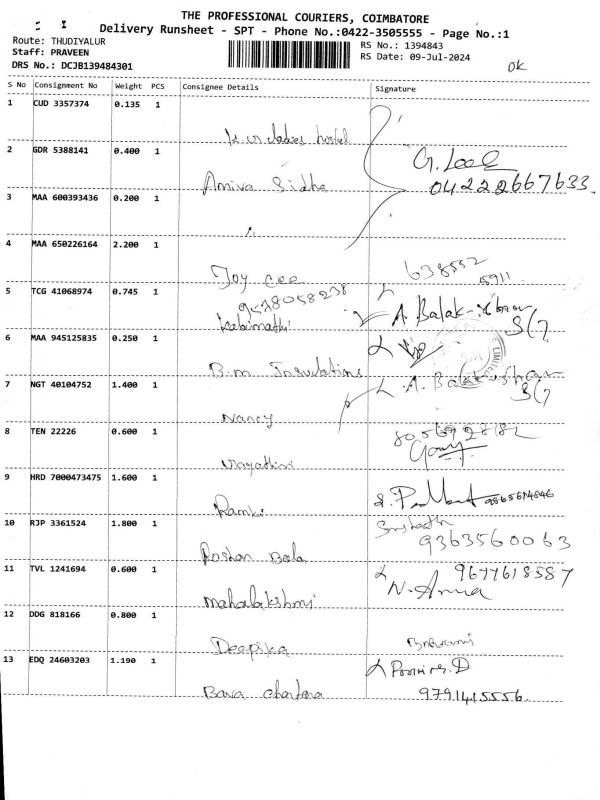 THE PROFESSIONAL COURIERS, COIMBATORE
Delivery Runsheet - SPT - Phone No.:0422-3505555 - Page No.:1
Route: THUDIYALUR
Staff: PRAVEEN
DRS No.: DCJB139484301
RS No.: 1394843
RS Date: 09-Jul-2024
OK
S No Consignment No Weight PCS Consignee Details Signature
1 CUD 3357374 0.135 1
ladies hostel
2 GDR 5388141 0.400 1
G. Leela
04222667633
3 MAA 600393436 0.200 1
4 MAA 650226164 2.200 1
Joy cee
638552
5911
5 TCG 41068974 0.745 1
9578058238
A. Balak
6 MAA 945125835 0.250 1
B.m Insulations
LIMITED
7 NGT 40104752 1.400 1
A. Balak
Nancy
8 TEN 22226 0.600 1
9 HRD 7000473475 1.600 1
Ramki
9865674846
10 RJP 3361524 1.800 1
Roshan Bala
9363560063
11 TVL 1241694 0.600 1
9677618587
Mahalakshmi
12 DDG 818166 0.800 1
Deepika
13 EDQ 24603203 1.190 1
9791415556